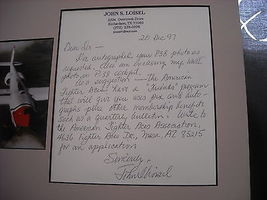 JOHN S. LOISEL
Richardson, TX 75080
20 Dec 97
Dear Sir —
I've autographed your P38 photo as
requested. Also am enclosing my
photo, in P38 cockpit.
As a suggestion — the American
Fighter Aces have a "Friends" program
that will give you aces pix and auto-
graphs plus other membership benefits
such as a quarterly bulletin. Write to
the American Fighter Aces Association,
4636 Fighter Aces Dr., Mesa, AZ 85215
for an application
Sincerely,
John Loisel